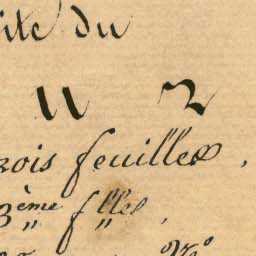 ite du
u 2
rois feuilles,
3ème f lles,
N°